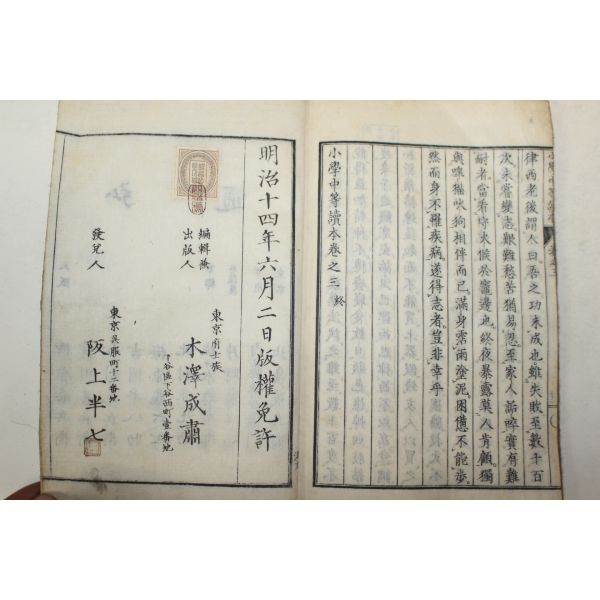 律西老後謂人曰吾之功未成也雖失敗至數十百
次未嘗變志艱難愁苦猶易忍至家人訴啐實有難
耐者當看守火候於竈邊也終夜暴露莫人肯顧獨
與嗥猫吠狗相伴而已滿身霑雨塗泥困憊不能步
然而身不罹疾病遂得志者豈非幸乎
小學中等讀本卷之三 終
明治十四年六月二日版權免許
編輯兼
出版人
東京府士族
木澤成肅
下谷區下谷西町壹番地
發兌人
東京呉服町十二番地
阪上半七